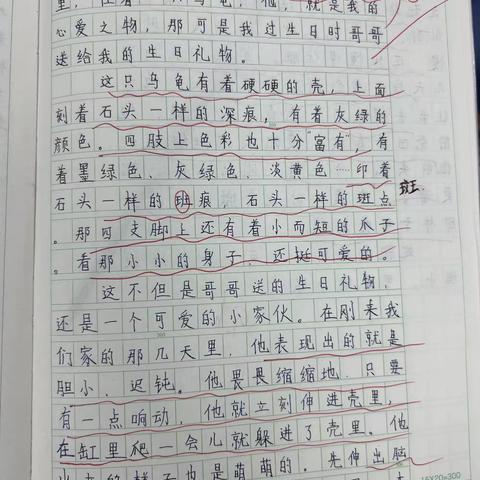 就是我的
心爱之物，那可是我过生日时哥哥
送给我的生日礼物。
这只乌龟有着硬硬的壳，上面
刻着石头一样的深痕，有着灰绿的
颜色。四肢上色彩也十分“富有”，有
着墨绿色、灰绿色、淡黄色……印着
石头一样的班痕，石头一样的斑点
斑
。那四支脚上还有着小而短的爪子
。看那小小的身子，还挺可爱的。
这不但是哥哥送的生日礼物，
还是一个可爱的小家伙。在刚来我
们家的那几天里，他表现出的就是
胆小、迟钝。他畏畏缩缩地，只要
有一点响动，他就立刻伸进壳里，
在缸里爬一会儿就躲进了壳里。他
样子也是萌萌的。先伸出脑
15X20=300